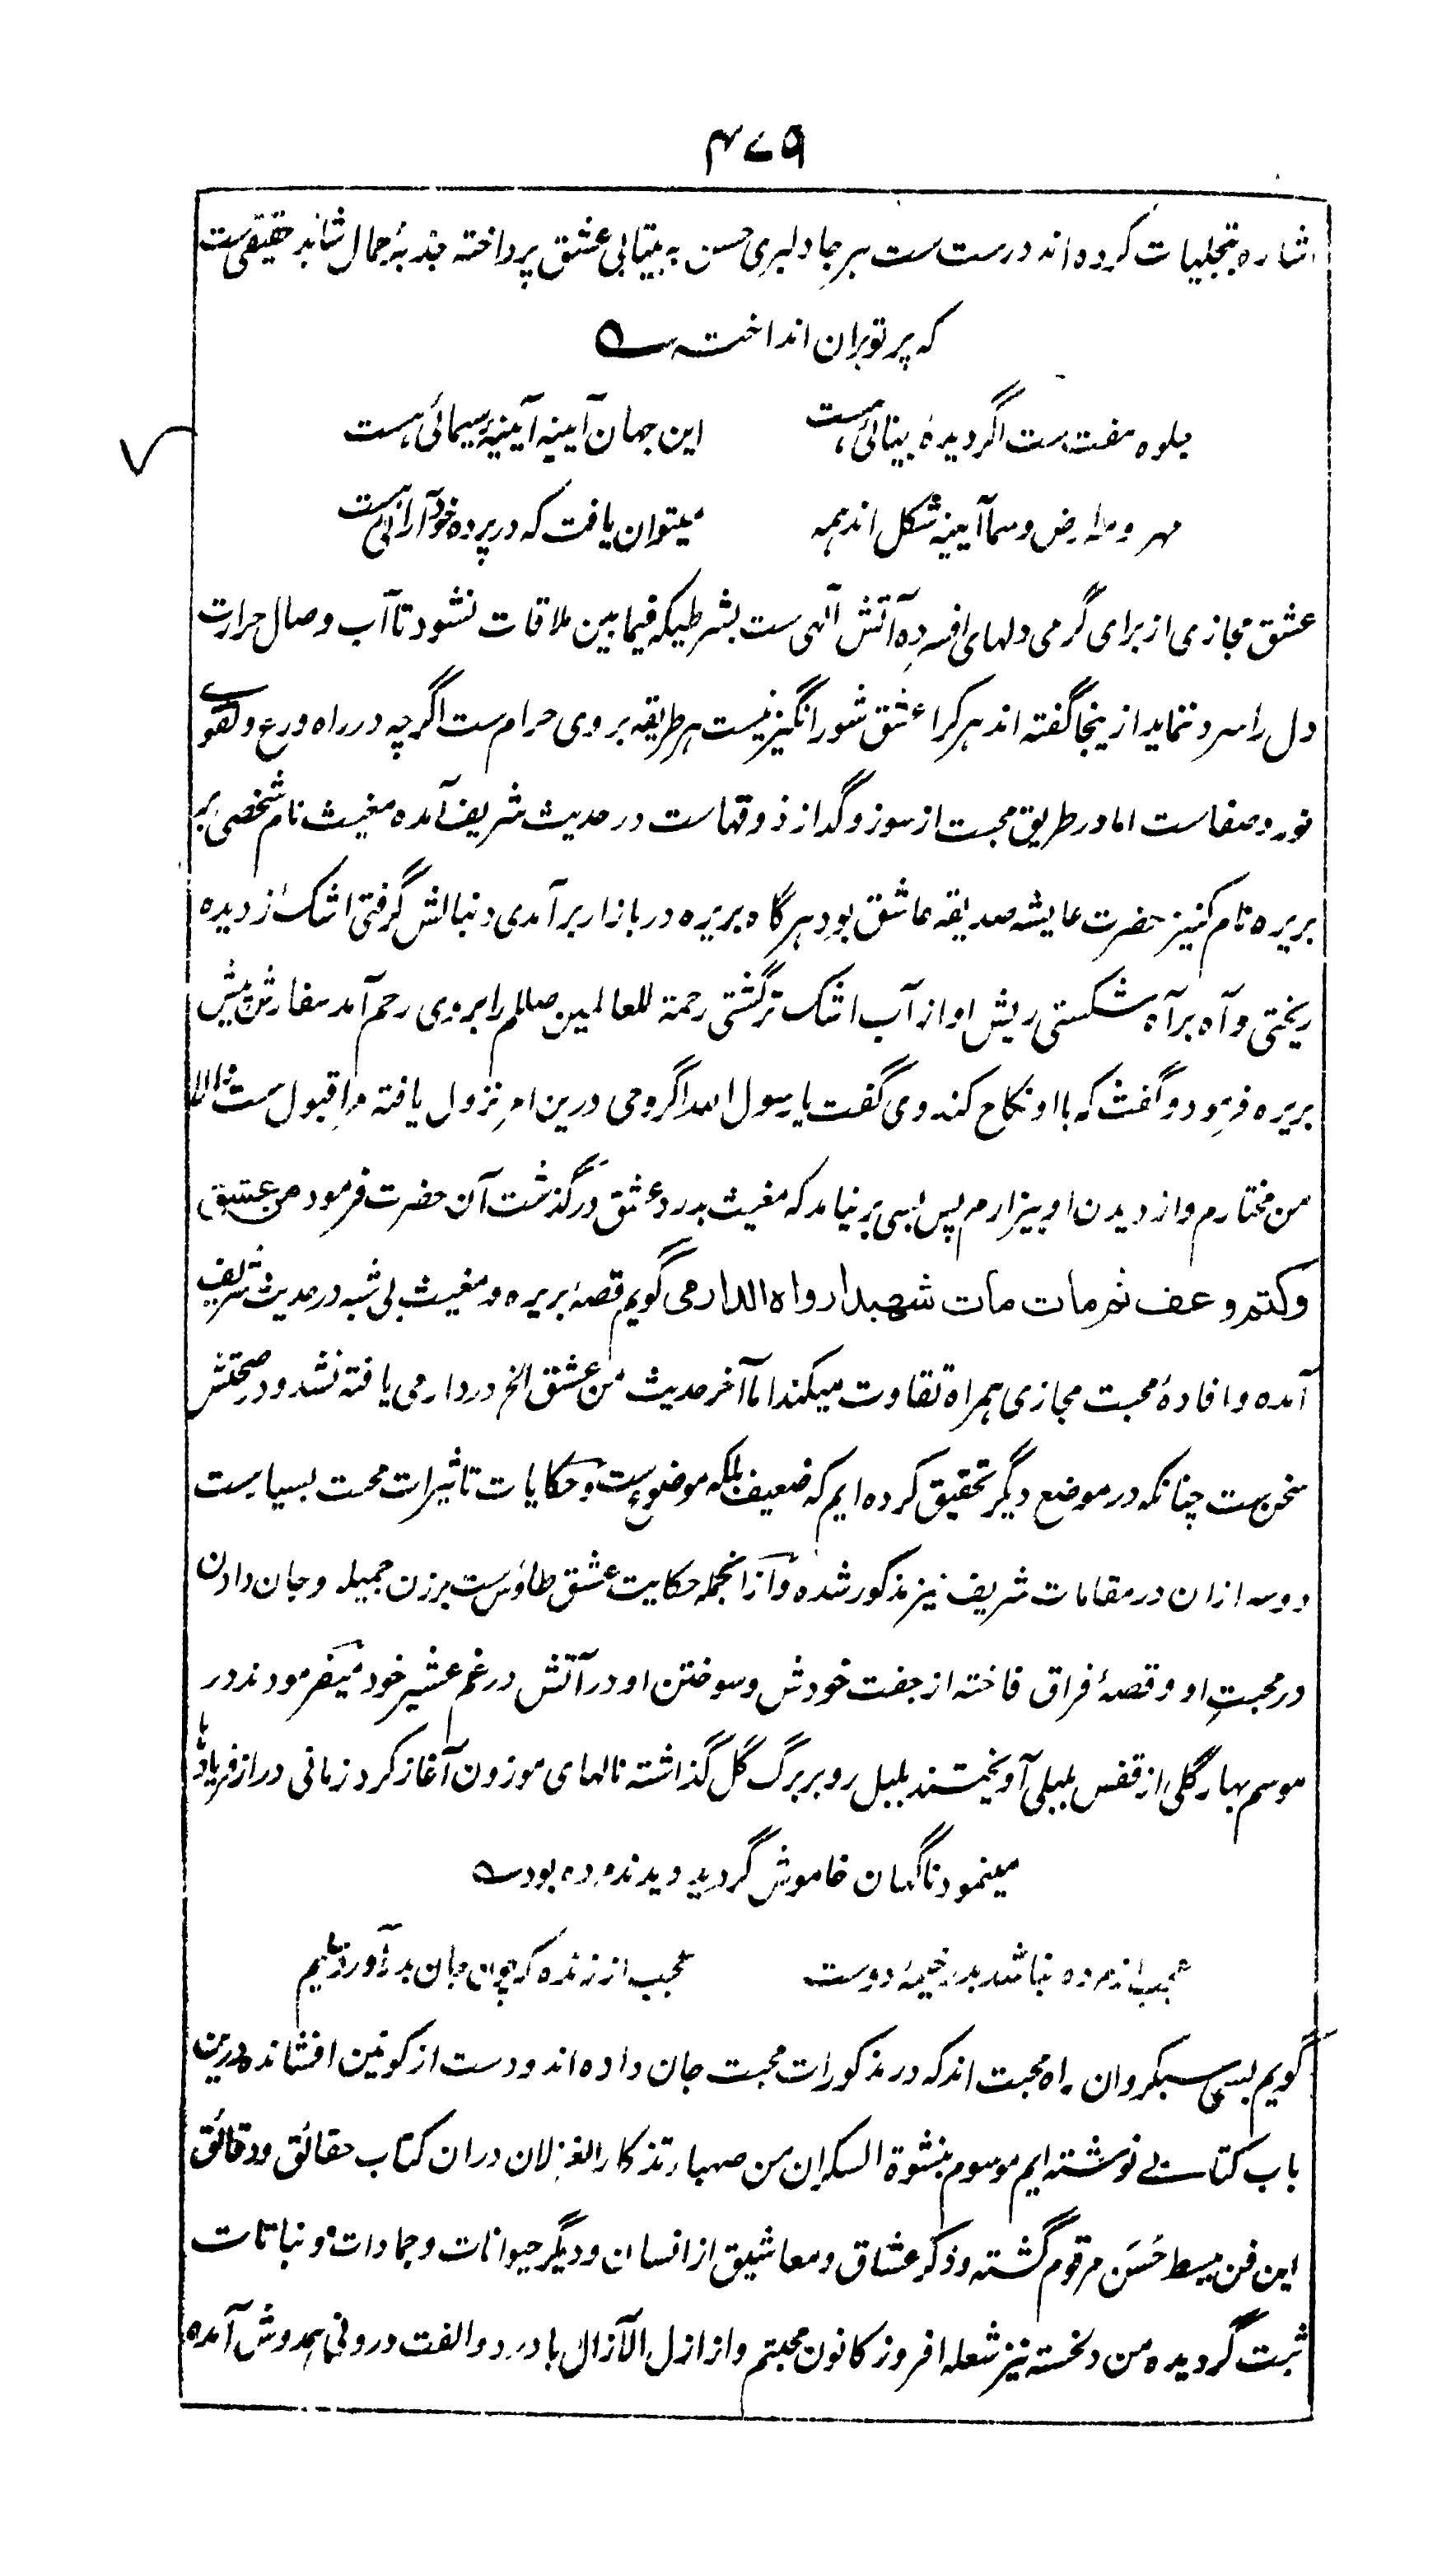 ۴۷۹
اشاره بتجلیات کرده‌اند درست ست هر جا دلبری حسن به بیتابی عشق پرداخته جذبهٔ جمال شاهد حقیقی ست
که پرتو بران انداخته ست ه
جلوه مفت ست اگر دیدهٔ بینائی هست این جهان آیینه آیینهٔ سیمائی هست
مهر و مه ارض و سما آیینه شکل اند همه میتوان یافت که در پرده خودآرائی هست
عشق مجازی از برای گرمی دلهای افسرده آتش آلهی ست بشرطیکه فیما بین ملاقات نشود تا آب وصال حرارت
دل را سرد ننماید ازینجا گفته اند هر کرا عشق شورانگیز نیست هر طریقه بر وی حرام ست اگرچه در راه ورع و تقوے
نور و صفاست اما در طریق محبت از سوز و گداز ذوقهاست در حدیث شریف آمده مغیث نام شخصی بر
بریره نام کنیز حضرت عایشه صدیقه عاشق بود هر گاه بریره در بازار برآمدی دنبالش گرفتی اشک از دیده
ریختی و آه بر آه شکستی ریش او از آب اشک تر گشتی رحمة للعالمین صللم را بروی رحم آمد سفارش پیش
بریره فرمود و گفت که با او نکاح کند وی گفت یا رسول الله اگر وحی درین امر نزول یافته مرا قبول ست والا
من مختارم و از دیدن او بیزارم پس بسی بر نیامد که مغیث بدرد عشق درگذشت آن حضرت فرمود من عشق
وکتم وعف ثم مات مات شهیدا رواه الدارمی گویم قصهٔ بریره و مغیث بی شبه در حدیث شریف
آمده و افادهٔ محبت مجازی همراه تقاوت میکند اما آخر حدیث من عشق الخ در دارمی یافته نشد و در صحتش
سخن ست چنانکه در موضع دیگر تحقیق کرده ایم که ضعیف بلکه موضوع ست و حکایات تاثیرات محبت بسیار ست
دو سه ازان در مقامات شریف نیز مذکور شده و ازانجمله حکایت عشق طاؤس ست بر زن جمیله و جان دادن
در محبت او و قصهٔ فراق فاخته از جفت خودش و سوختن او در آتش در غم عشیر خود میفرمودند در
موسم بهار گلی از قفس بلبلی آویختند بلبل رو بر برگ گل گذاشته نالهای موزون آغاز کرد زمانی دراز فریادها
مینمود ناگهان خاموش گردید دیدند مرده بود ه
عجب از مرده نباشد بدر خیمهٔ دوست عجب از زنده که چون جان بدر آورد سلیم
گویم بسی سبکروان راه محبت اند که در مذکورات محبت جان داده اند و دست از کونین افشانده درین
باب کتابے نوشته ایم موسوم بنشوة السکران من صهباء تذکار الغزلان دران کتاب حقائق و دقائق
این فن ببسط حَسَن مرقوم گشته و ذکر عشاق و معاشیق از انسان و دیگر حیوانات و جمادات و نباتات
ثبت گردیده من دلخسته نیز شعله افروز کانون محبتم و از ازل الآزال با درد و الفت درونی همدوش آمده